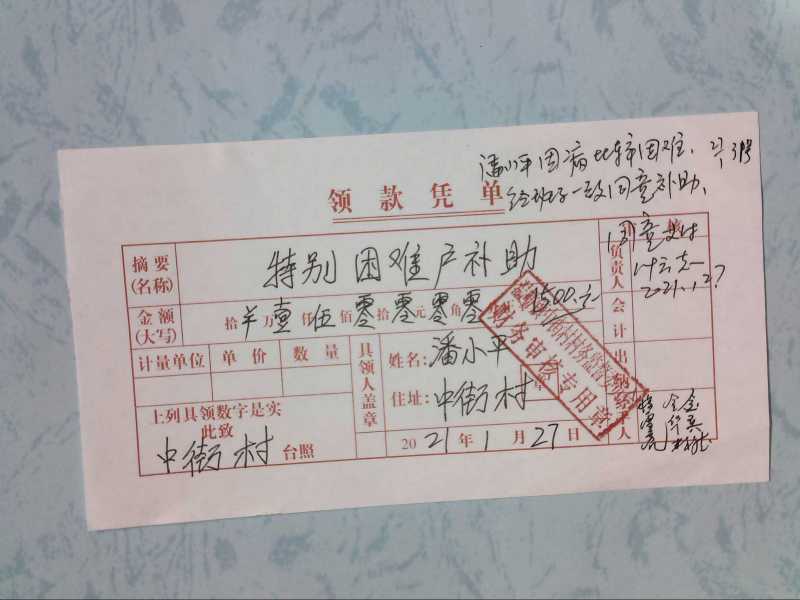 潘小平因病比较困难,
经班子一致同意补助,
领款凭单
同意支付
2021.1.27
摘要
(名称)
特别困难户补助
负责人
金额
(大写)
拾 羊 万 壹 仟 伍 佰 零 拾 零 元 零 角 零
1500.元
会计
计量单位 单价 数量
具领人盖章
姓名: 潘小平
住址: 中街村
章
出纳
财务审核专用章
上列具领数字是实
此致
中街村 台照
2021年1月27日
人